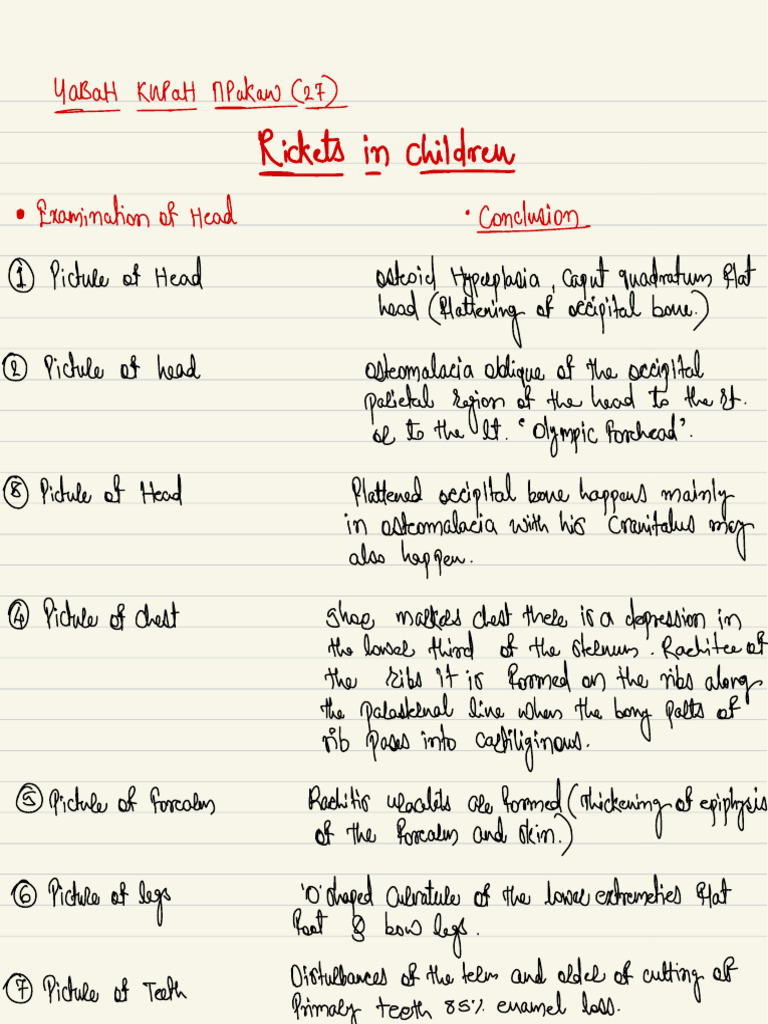 ЧАВАН КИРАН ПРАКАШ (27)
Rickets in children
• Examination of Head • Conclusion
① Picture of Head osteoid Hyperplasia, Caput quadratum flat
head (flattening of occipital bone.)
② Picture of head osteomalacia oblique of the occipital
parietal region of the head to the rt.
or to the lt. "Olympic forehead".
③ Picture of Head Flattened occipital bone happens mainly
in osteomalacia with his may
also happen.
④ Picture of chest Shoe makers chest there is a depression in
the lower third of the sternum. of
the ribs it is formed on the ribs along
the parasternal line when the bony parts of
rib pases into cartiliginous.
⑤ Picture of forearm Rachitis are formed (thickening of epiphysis
of the forearm and skin.)
⑥ Picture of legs 'O' shaped curvature of the lower extremeties flat
foot & bow legs.
⑦ Picture of Teeth Disturbances of the term and order of cutting of
Primary teeth 85% enamel loss.